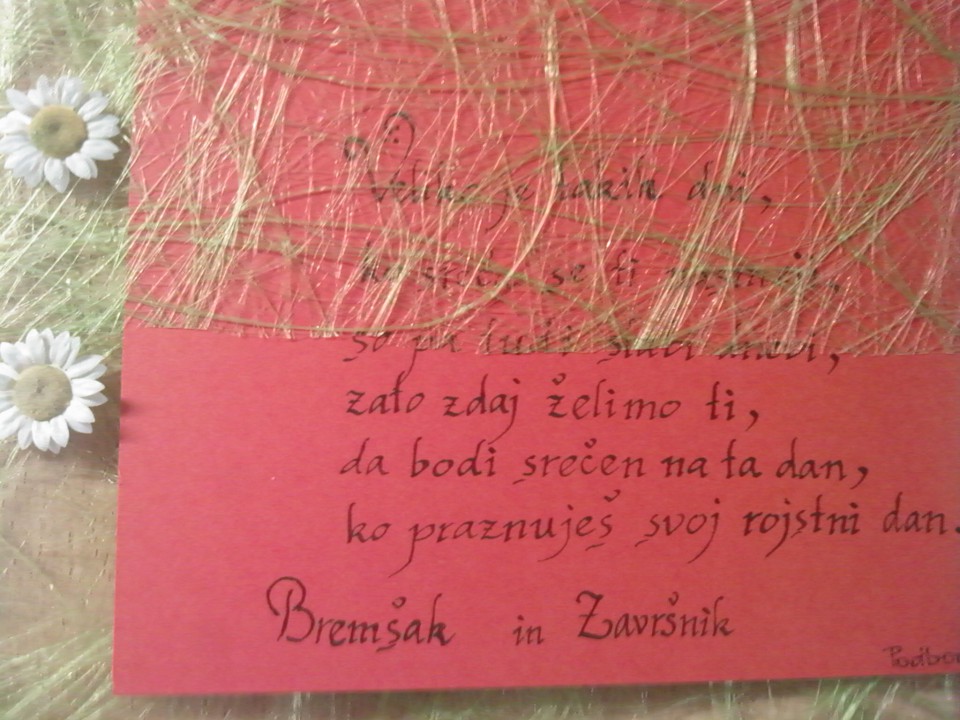 Veliko je takih dni,
ko se ti
so pa tudi slabi dnevi,
zato zdaj želimo ti,
da bodi srečen na ta dan,
ko praznuješ svoj rojstni dan.
Bremšak in Završnik